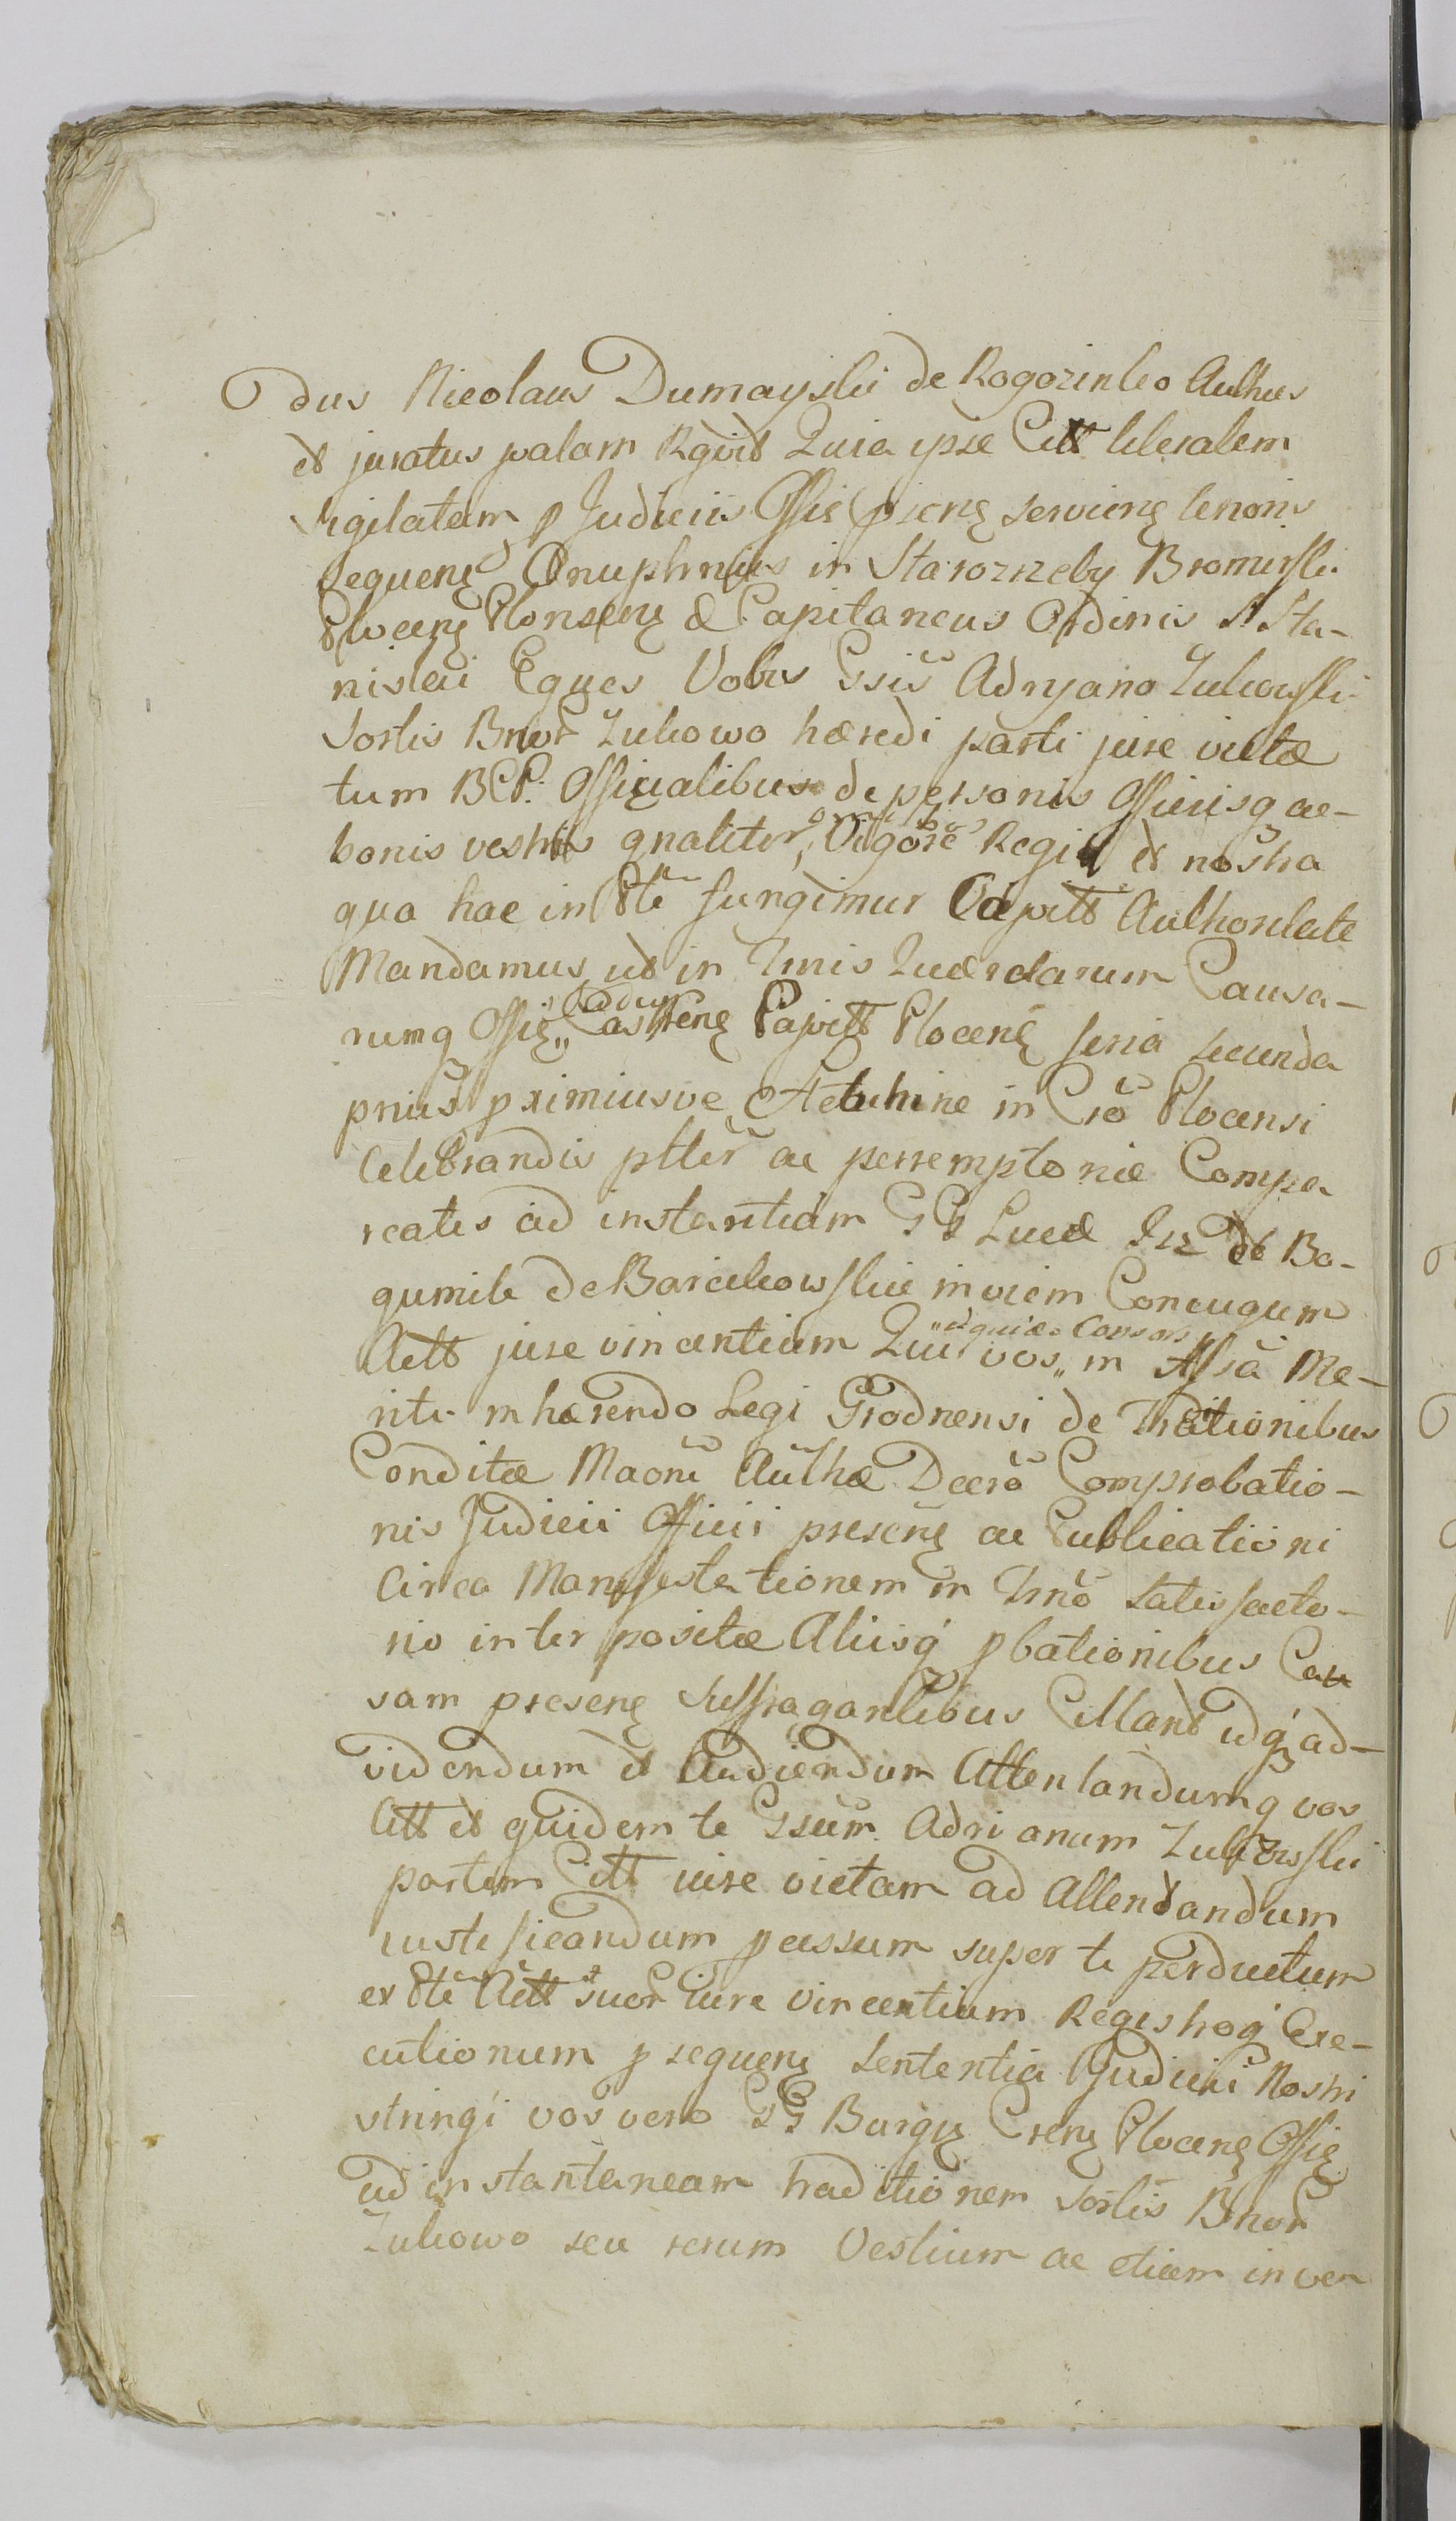 Odus Nicolaus Dumayski de Rogozinko Authus
et juratus palam Rgvit Quia ipse Citt liberalem
sigilatam p Judiciis Offie psieng servieng tenoris
sequeng Onuphrius in Starozreby Bromirski
Ploceng Plonseng & Capitaneus Ordinis S Sta-
nislai Eques Vobis Gsis Adryano Zukowski
Sortis Bnor Zukowo hæredi parti jure victæ
tum BCP. Officialibus de personis Officiisq ac-
bonis vestris qnaliter omibus Vigore Regia et nostra
qua hac in Pte fungimur Capitt Authoritate
Mandamus ut in Tmis Quærelarum Causa-
rumq Offie„ Castreng Capitt Ploceng feria secunda
prius pximiusve Hebuhine in Cro Plocensi
Celebrandis ptter ac perremptorie Compa
reatis ad instantiam GG Lucæ Irz et Bo-
gumile de Barcikowskie invicem Coniugum
Actt jure vincentium Qui vos„ „atquidæ Consors in Assa Me-
rito inhærendo Legi Grodnensi de Traditionibus
Conditæ Maoni Authæ Decro Comprobatio-
nis Judicii Officii preseng ac Publicationi
Circa Manifestationem in Tmo Satisfacto-
rio interpositæ Aliisq pbationibus Cau
sam preseng suffragantibus Cittant idq ad-
videndum et Audiendum Attentandumq vos
Citt et quidem te Gssum Adrianum Zukowski
partem Citt iure victam ad Attendandum
iustificandum pcussum super te perductum
ex Pte Actt suor iure vincentium Regestroq Exe-
cutionum p sequeng Sententia Judicii Nostri
stringi vos vero GG Burgg Creng Ploceng Offig
ad instantaneam traditionem Sortis Bnor
Zukowo seu rerum Vestium ac etiam in ver